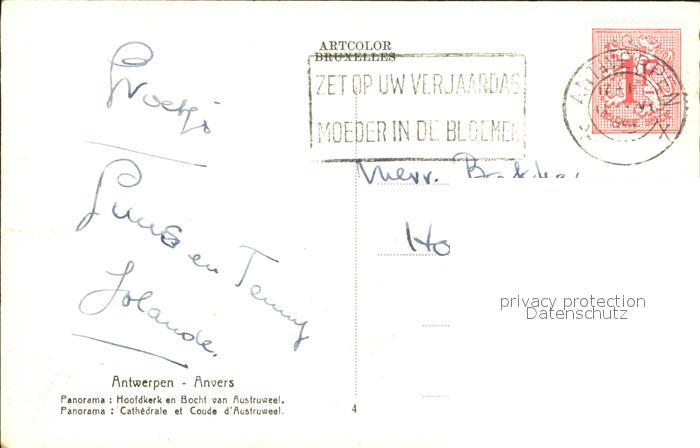 ARTCOLOR
BRUXELLES
ZET OP UW VERJAARDAG
MOEDER IN DE BLOEMEN
ANTWERPEN X
1
Groetjes
Guus en Tenny
Jolande.
Mevr.
Ho
privacy protection
Datenschutz
Antwerpen - Anvers
Panorama : Hoofdkerk en Bocht van Austruweel.
Panorama : Cathédrale et Coude d'Austruweel.
4